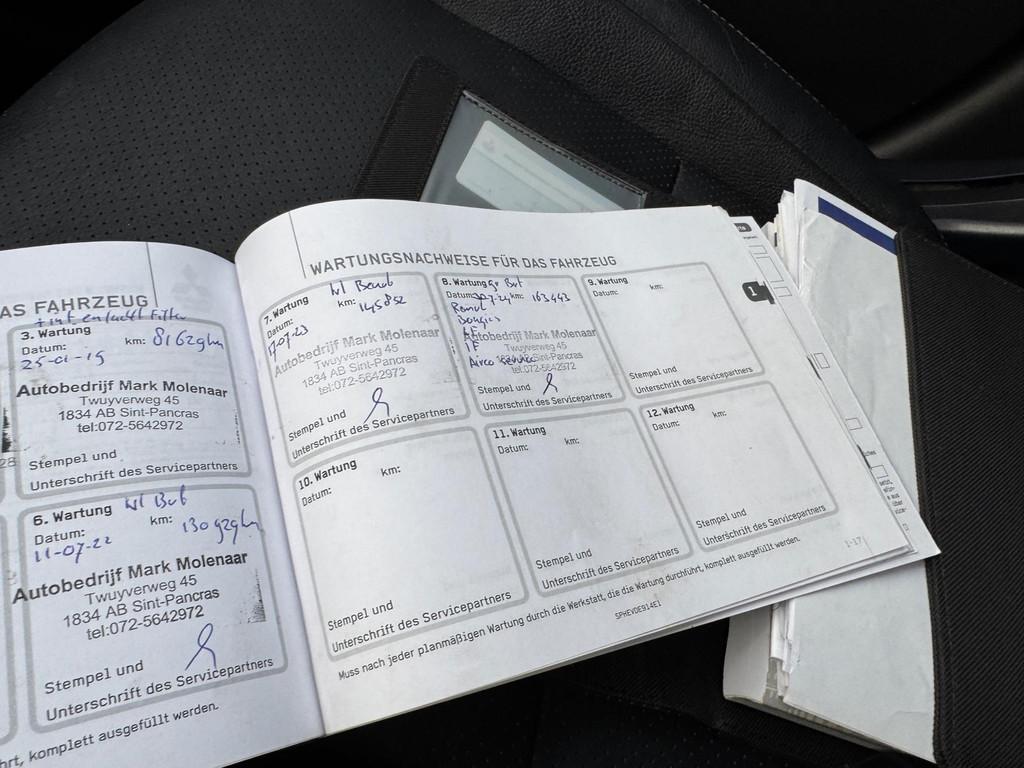 AS FAHRZEUG
3. Wartung
Datum: km: 81629km
25-01-19
Autobedrijf Mark Molenaar
Twuyverweg 45
1834 AB Sint-Pancras
tel:072-5642972
28
Stempel und
Unterschrift des Servicepartners
6. Wartung
Datum: km: 130929km
11-07-22
Autobedrijf Mark Molenaar
Twuyverweg 45
1834 AB Sint-Pancras
tel:072-5642972
Stempel und
Unterschrift des Servicepartners
hrt, komplett ausgefüllt werden.
WARTUNGSNACHWEISE FÜR DAS FAHRZEUG
7. Wartung
Datum: km: 145852
17-07-23
Autobedrijf Mark Molenaar
Twuyverweg 45
1834 AB Sint-Pancras
tel:072-5642972
Stempel und
Unterschrift des Servicepartners
8. Wartung
Datum: km: 163443
Bougies
Airco service
Autobedrijf Mark Molenaar
Twuyverweg 45
1834 AB Sint-Pancras
tel:072-5642972
Stempel und
Unterschrift des Servicepartners
9. Wartung
Datum: km:
Stempel und
Unterschrift des Servicepartners
10. Wartung
Datum: km:
Stempel und
Unterschrift des Servicepartners
11. Wartung
Datum: km:
Stempel und
Unterschrift des Servicepartners
12. Wartung
Datum: km:
Stempel und
Unterschrift des Servicepartners
Muss nach jeder planmäßigen Wartung durch die Werkstatt, die die Wartung durchführt, komplett ausgefüllt werden.
SPHEVDE914E1
1-17
1